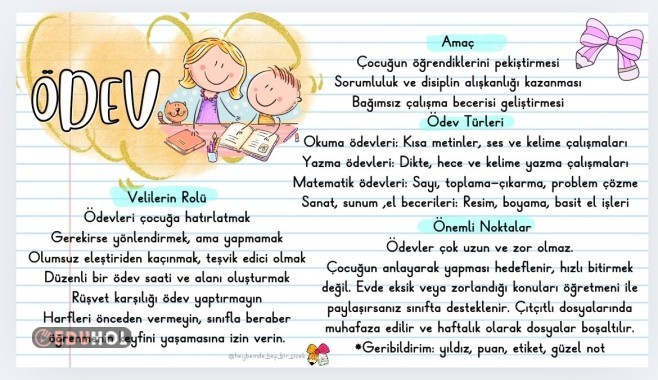 ÖDEV
Amaç
Çocuğun öğrendiklerini pekiştirmesi
Sorumluluk ve disiplin alışkanlığı kazanması
Bağımsız çalışma becerisi geliştirmesi
Ödev Türleri
Okuma ödevleri: Kısa metinler, ses ve kelime çalışmaları
Yazma ödevleri: Dikte, hece ve kelime yazma çalışmaları
Matematik ödevleri: Sayı, toplama-çıkarma, problem çözme
Sanat, sunum ,el becerileri: Resim, boyama, basit el işleri
Velilerin Rolü
Ödevleri çocuğa hatırlatmak
Gerekirse yönlendirmek, ama yapmamak
Olumsuz eleştiriden kaçınmak, teşvik edici olmak
Düzenli bir ödev saati ve alanı oluşturmak
Rüşvet karşılığı ödev yaptırmayın
Harfleri önceden vermeyin, sınıfla beraber
öğrenmenin keyfini yaşamasına izin verin.
EDUHOL
Önemli Noktalar
Ödevler çok uzun ve zor olmaz.
Çocuğun anlayarak yapması hedeflenir, hızlı bitirmek
değil. Evde eksik veya zorlandığı konuları öğretmeni ile
paylaşırsanız sınıfta desteklenir. Çıtçıtlı dosyalarında
muhafaza edilir ve haftalık olarak dosyalar boşaltılır.
*Geribildirim: yıldız, puan, etiket, güzel not